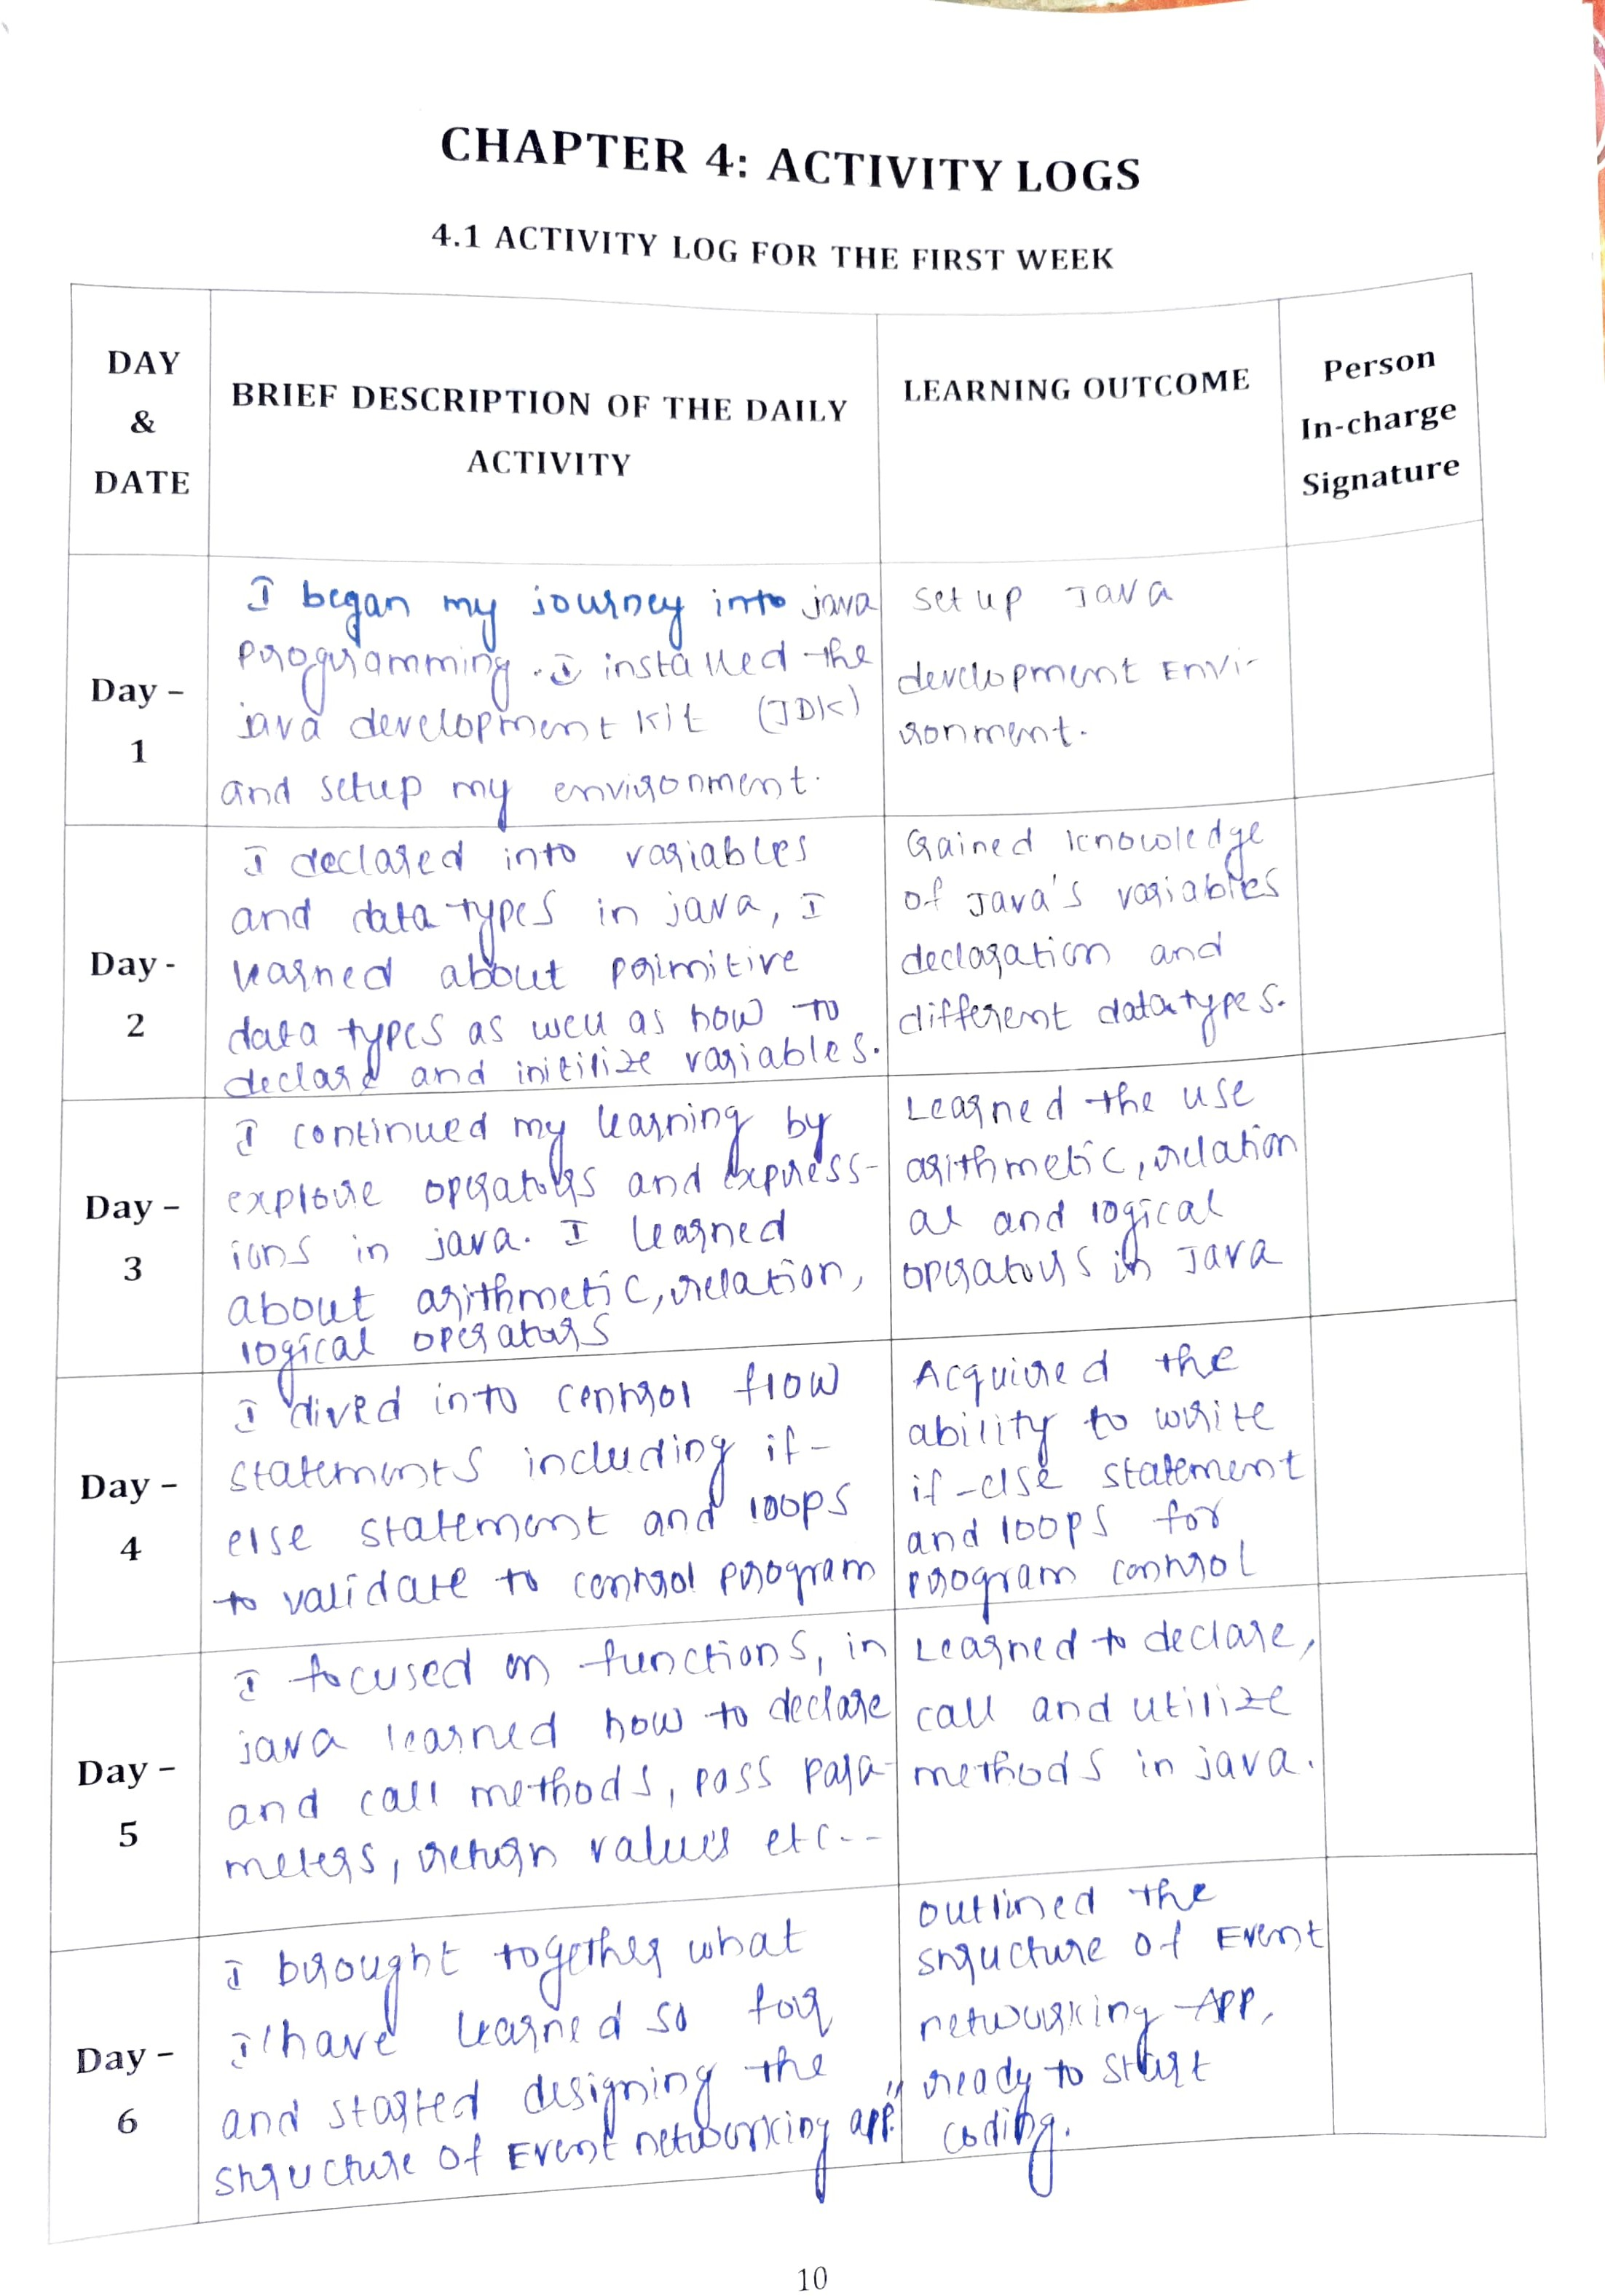 CHAPTER 4: ACTIVITY LOGS
4.1 ACTIVITY LOG FOR THE FIRST WEEK
DAY
&
DATE
BRIEF DESCRIPTION OF THE DAILY
ACTIVITY
LEARNING OUTCOME
Person
In-charge
Signature
Day –
1
I began my journey into java
programming. I installed the
java development kit (JDK)
and setup my environment.
Set up Java
development Envi-
ronment.
Day -
2
I declared into variables
and data types in java, I
learned about primitive
data types as well as how to
declare and initilize variables.
Gained knowledge
of Java's variables
declaration and
different datatypes.
Day –
3
I continued my learning by
explore operators and express-
ions in java. I learned
about arithmetic, relation,
logical operators
Learned the use
arithmetic, relation
al and logical
operators in Java
Day –
4
I dived into control flow
statements including if-
else statement and loops
to validate to control program
Acquired the
ability to write
if-else statement
and loops for
program control
Day –
5
I focused on functions, in
java learned how to declare
and call methods, pass para-
meters, return values etc--
Learned to declare,
call and utilize
methods in java.
Day –
6
I brought together what
I have learned so for
and started designing the
structure of Event networking app."
outlined the
structure of Event
networking App,
ready to start
coding.
10